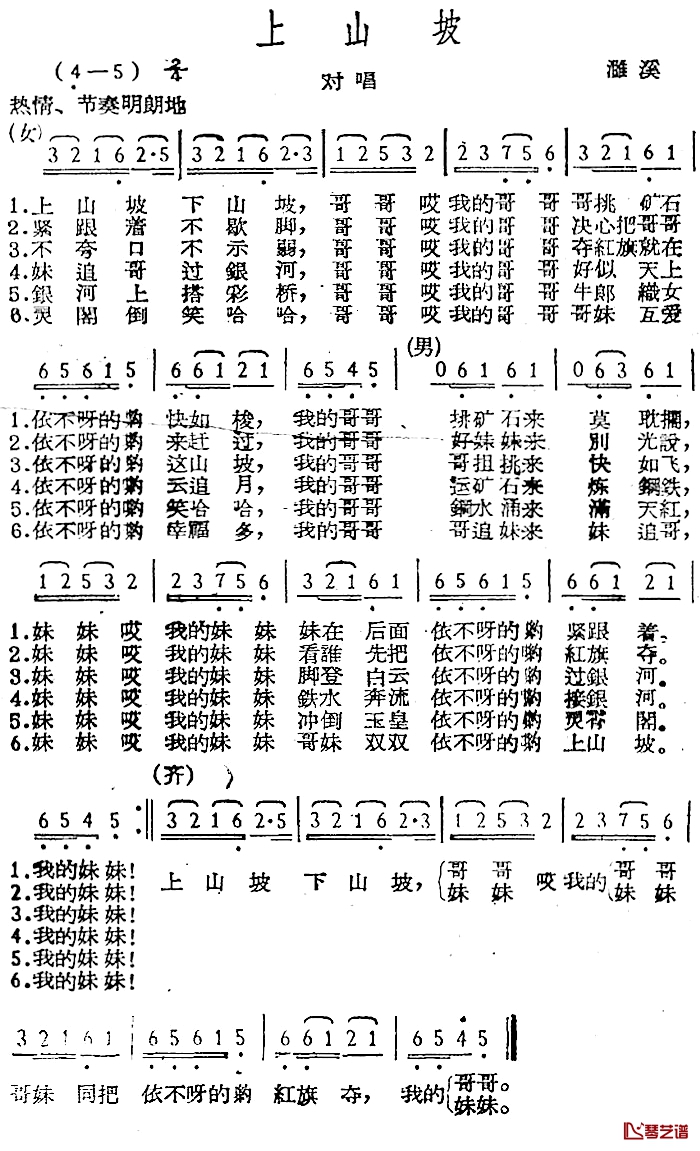 上山坡
(4—5) 2/4 对唱 濉溪
热情、节奏明朗地
(女)
3 2 1 6 2·5 | 3 2 1 6 2·3 | 1 2 5 3 2 | 2 3 7 5 6 | 3 2 1 6 1 |
1.上山坡下山坡，哥哥哎我的哥哥哥挑矿石
2.紧跟着不歇脚，哥哥哎我的哥哥决心把哥哥
3.不夸口不示弱，哥哥哎我的哥哥夺紅旗就在
4.妹追哥过銀河，哥哥哎我的哥哥好似天上
5.銀河上搭彩桥，哥哥哎我的哥哥牛郎織女
6.灵閣倒笑哈哈，哥哥哎我的哥哥哥妹互爱
(男)
6 5 6 1 5 | 6 6 1 2 1 | 6 5 4 5 | 0 6 1 6 1 | 0 6 3 6 1 |
1.依不呀的哟快如梭，我的哥哥 挑矿石来莫耽擱，
2.依不呀的哟来赶过，我的哥哥 好妹妹来別光說，
3.依不呀的哟这山坡，我的哥哥 哥担挑来快如飞，
4.依不呀的哟云追月，我的哥哥 运矿石来炼鋼鉄，
5.依不呀的哟笑哈哈，我的哥哥 鋼水涌来滿天紅，
6.依不呀的哟幸福多，我的哥哥 哥追妹来妹追哥，
1 2 5 3 2 | 2 3 7 5 6 | 3 2 1 6 1 | 6 5 6 1 5 | 6 6 1 2 1 |
1.妹妹哎我的妹妹妹在后面依不呀的哟紧跟着。
2.妹妹哎我的妹妹看誰先把依不呀的哟紅旗夺。
3.妹妹哎我的妹妹脚登白云依不呀的哟过銀河。
4.妹妹哎我的妹妹鉄水奔流依不呀的哟接銀河。
5.妹妹哎我的妹妹冲倒玉皇依不呀的哟灵霄閣。
6.妹妹哎我的妹妹哥妹双双依不呀的哟上山坡。
(齐)
6 5 4 5 :‖ 3 2 1 6 2·5 | 3 2 1 6 2·3 | 1 2 5 3 2 | 2 3 7 5 6 |
1.我的妹妹！ 上山坡下山坡，{哥哥 哎我的{哥哥
2.我的妹妹！ 妹妹 妹妹
3.我的妹妹！
4.我的妹妹！
5.我的妹妹！
6.我的妹妹！
3 2 1 6 1 | 6 5 6 1 5 | 6 6 1 2 1 | 6 5 4 5 ‖
哥妹同把依不呀的哟紅旗夺，我的{哥哥。
妹妹。
琴艺谱